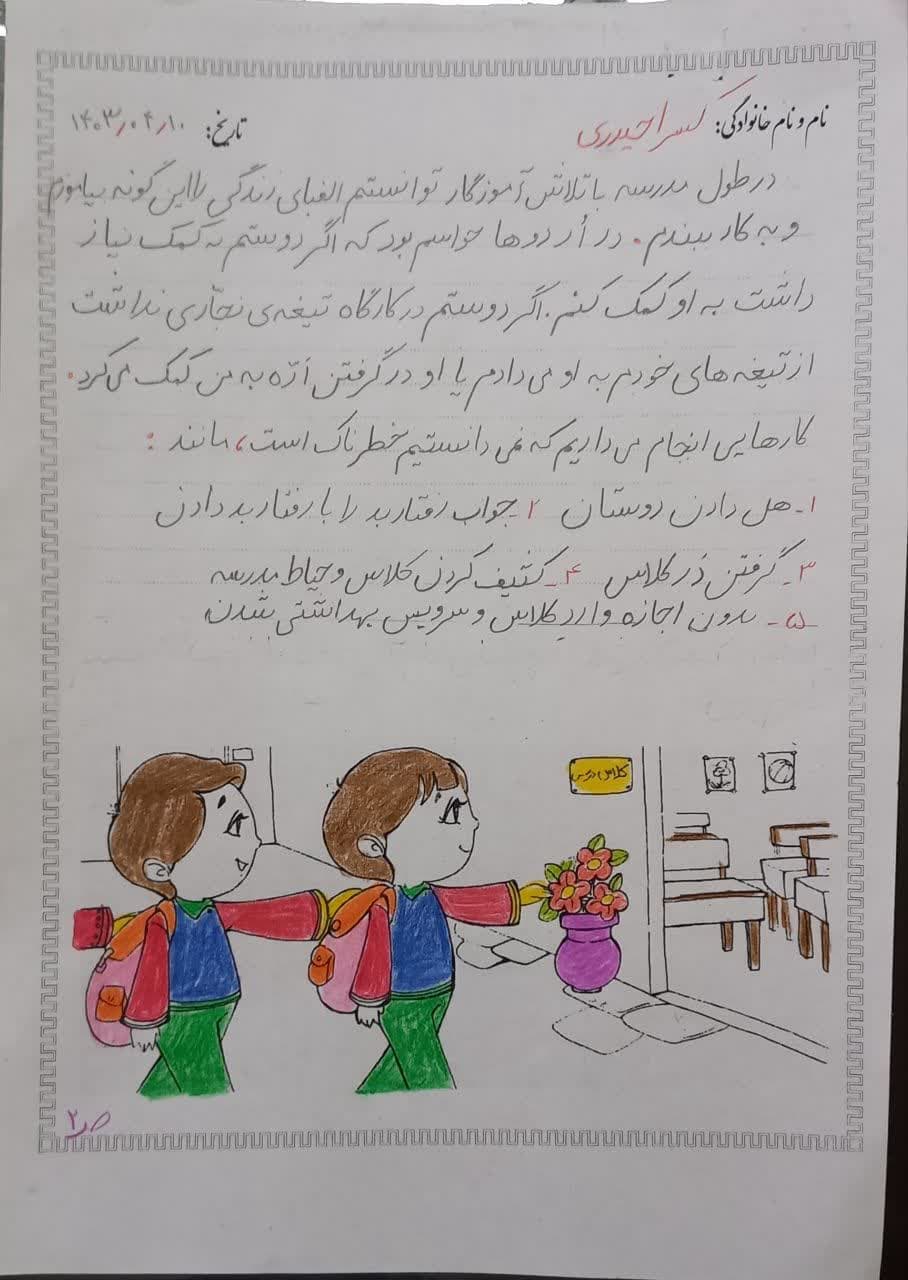 نام و نام خانوادگی: کسرا حیدری تاریخ: ۱۴۰۳/۰۴/۱۰
در طول مدرسه با تلاش آموزگار توانستم الفبای زندگی را این گونه بیاموزم
و به کار ببندم. در اُردوها حواسم بود که اگر دوستم به کمک نیاز
داشت به او کمک کنم. اگر دوستم در کارگاه تیغه‌ی نجّاری نداشت
از تیغه های خودم به او می دادم یا او در گرفتن ارّه به من کمک می کرد.
کارهایی انجام می داریم که نمی دانستیم خطرناک است، مانند :
۱- هل دادن دوستان ۲- جواب رفتار بد را با رفتار بد دادن
۳- گرفتن دَر کلاس ۴- کثیف کردن کلاس و حیاط مدرسه
۵- بدون اجازه وارد کلاس و سرویس بهداشتی شدن
کلاس درس
ص ۲